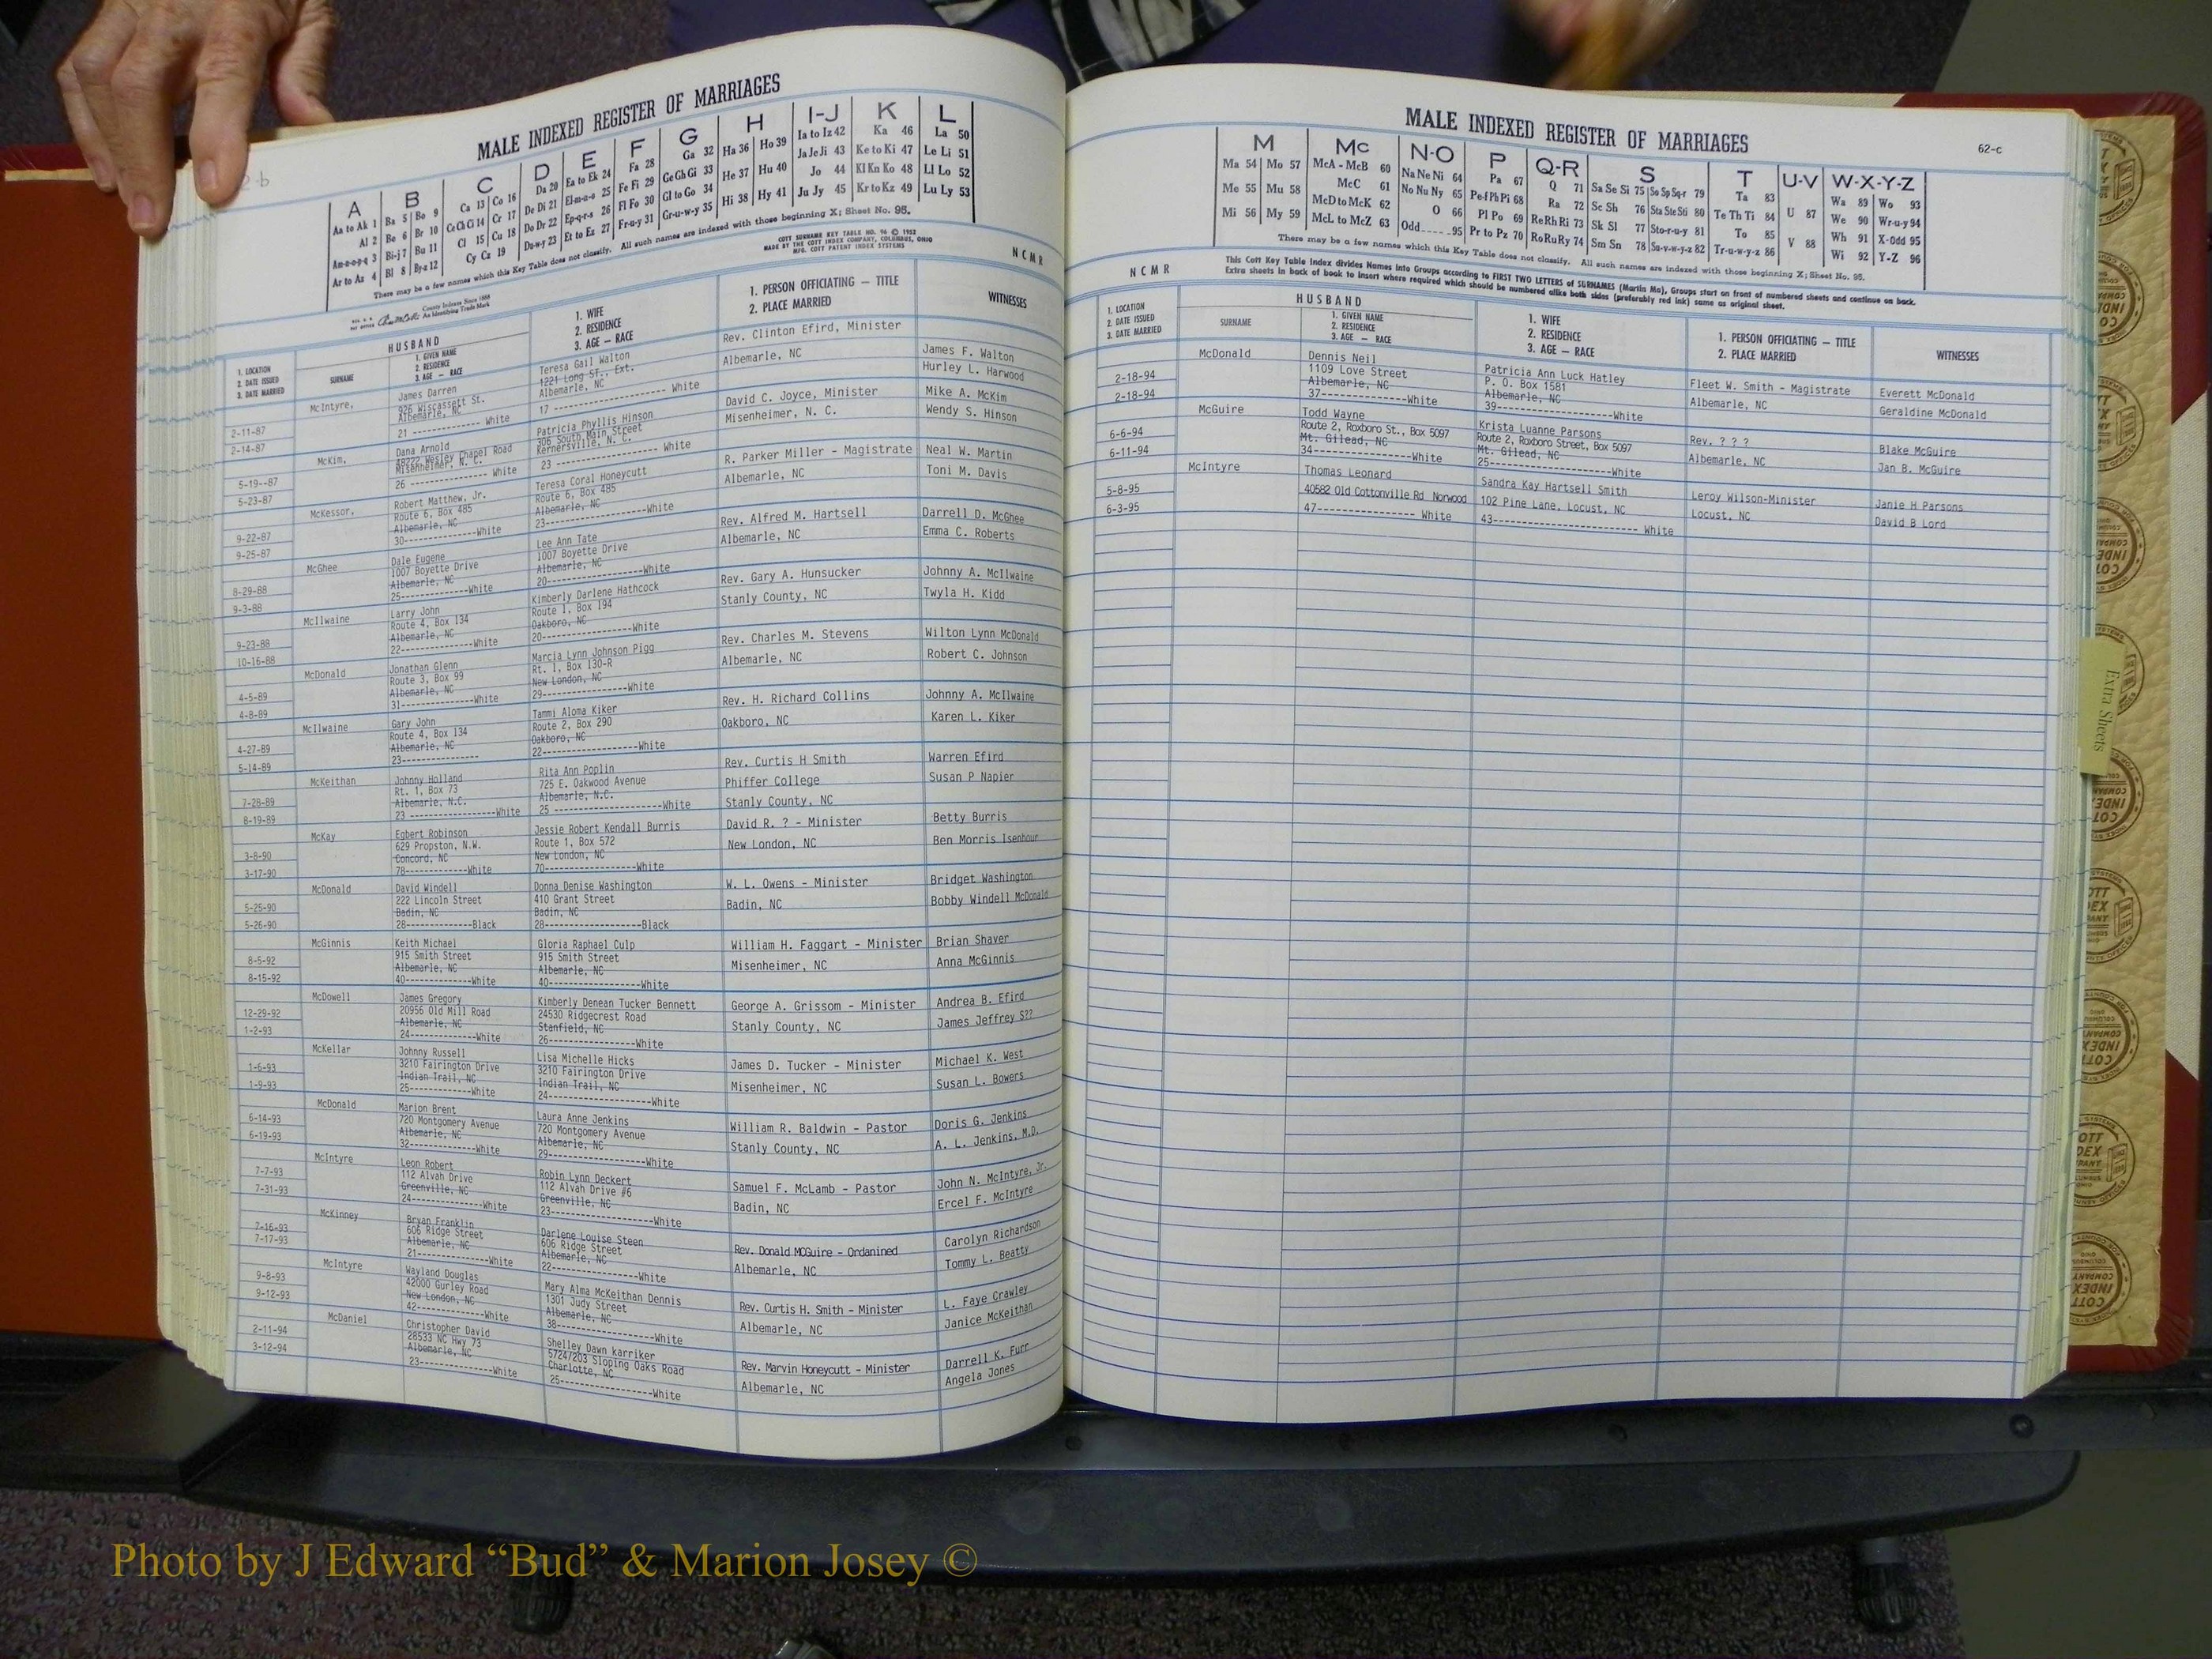 2-b
MALE INDEXED REGISTER OF MARRIAGES
A B C D E F G H I-J K L
Aa to Ak 1 Ba 5 Bo 9 Ca 13 Co 16 Da 20 Ea to Ek 24 Fa 28 Ga 32 Ha 36 Ho 39 Ia to Iz 42 Ka 46 La 50
Al 2 Be 6 Br 10 Ce Ch Gi 14 Cr 17 De Di 21 El-m-n-o 25 Fe Fi 29 Ge Gh Gi 33 He 37 Hu 40 Ja Je Ji 43 Ke to Ki 47 Le Li 51
Am-n-o-p-q 3 Bi-j 7 Bu 11 Cl 15 Cu 18 Do Dr 22 Ep-q-r-s 26 Fl Fo 30 Gl to Go 34 Hi 38 Hy 41 Jo 44 Kl Kn Ko 48 Ll Lo 52
Ar to Az 4 Bl 8 By-z 12 Cy Cz 19 Du-w-y 23 Et to Ez 27 Fr-u-y 31 Gr-u-w-y 35 Ju Jy 45 Kr to Kz 49 Lu Ly 53
There may be a few names which this Key Table does not classify. All such names are indexed with those beginning X; Sheet No. 95.
COTT SURNAME KEY TABLE NO. 96 © 1952
MADE BY THE COTT INDEX COMPANY, COLUMBUS, OHIO
MFG. COTT PATENT INDEX SYSTEMS
County Indexes Since 1888
An Identifying Trade Mark
NCMR
1. LOCATION
2. DATE ISSUED
3. DATE MARRIED
HUSBAND
SURNAME
1. GIVEN NAME
2. RESIDENCE
3. AGE — RACE
1. WIFE
2. RESIDENCE
3. AGE — RACE
1. PERSON OFFICIATING — TITLE
2. PLACE MARRIED
WITNESSES
2-11-87
2-14-87
McIntyre,
James Darren
926 Wiscassett St.
Albemarle, NC
21 ------------ White
Teresa Gail Walton
1221 Long ST., Ext.
Albemarle, NC
17 ------------ White
Rev. Clinton Efird, Minister
Albemarle, NC
James F. Walton
Hurley L. Harwood
5-19--87
5-23-87
McKim,
Dana Arnold
48222 Wesley Chapel Road
Misenheimer, N. C.
26 ------------ White
Patricia Phyllis Hinson
306 South Main Street
Kernersville, N. C.
23 ------------ White
David C. Joyce, Minister
Misenheimer, N. C.
Mike A. McKim
Wendy S. Hinson
9-22-87
9-25-87
McKessor,
Robert Matthew, Jr.
Route 6, Box 485
Albemarle, NC
30-------------White
Teresa Coral Honeycutt
Route 6, Box 485
Albemarle, NC
23-------------White
R. Parker Miller - Magistrate
Albemarle, NC
Neal W. Martin
Toni M. Davis
8-29-88
9-3-88
McGhee
Dale Eugene
1007 Boyette Drive
Albemarle, NC
25-------------White
Lee Ann Tate
1007 Boyette Drive
Albemarle, NC
20-------------White
Rev. Alfred M. Hartsell
Albemarle, NC
Darrell D. McGhee
Emma C. Roberts
9-23-88
10-16-88
McIlwaine
Larry John
Route 4, Box 134
Albemarle, NC
22-------------White
Kimberly Darlene Hathcock
Route 1, Box 194
Oakboro, NC
20-------------White
Rev. Gary A. Hunsucker
Stanly County, NC
Johnny A. McIlwaine
Twyla H. Kidd
4-5-89
4-8-89
McDonald
Jonathan Glenn
Route 3, Box 99
Albemarle, NC
31-------------White
Marcia Lynn Johnson Pigg
Rt. 1, Box 130-R
New London, NC
29-------------White
Rev. Charles M. Stevens
Albemarle, NC
Wilton Lynn McDonald
Robert C. Johnson
4-27-89
5-14-89
McIlwaine
Gary John
Route 4, Box 134
Albemarle, NC
23--------------
Tammi Aloma Kiker
Route 2, Box 290
Oakboro, NC
22-------------White
Rev. H. Richard Collins
Oakboro, NC
Johnny A. McIlwaine
Karen L. Kiker
7-28-89
8-19-89
McKeithan
Johnny Holland
Rt. 1, Box 73
Albemarle, N.C.
23 -------------White
Rita Ann Poplin
725 E. Oakwood Avenue
Albemarle, N.C.
25 -------------White
Rev. Curtis H Smith
Phiffer College
Stanly County, NC
Warren Efird
Susan P Napier
3-8-90
3-17-90
McKay
Egbert Robinson
629 Propston, N.W.
Concord, NC
78-------------White
Jessie Robert Kendall Burris
Route 1, Box 572
New London, NC
70-------------White
David R. ? - Minister
New London, NC
Betty Burris
Ben Morris Isenhour
5-25-90
5-26-90
McDonald
David Windell
222 Lincoln Street
Badin, NC
28-------------Black
Donna Denise Washington
410 Grant Street
Badin, NC
28-------------Black
W. L. Owens - Minister
Badin, NC
Bridget Washington
Bobby Windell McDonald
8-5-92
8-15-92
McGinnis
Keith Michael
915 Smith Street
Albemarle, NC
40-------------White
Gloria Raphael Culp
915 Smith Street
Albemarle, NC
40-------------White
William H. Faggart - Minister
Misenheimer, NC
Brian Shaver
Anna McGinnis
12-29-92
1-2-93
McDowell
James Gregory
20956 Old Mill Road
Albemarle, NC
24-------------White
Kimberly Denean Tucker Bennett
24530 Ridgecrest Road
Stanfield, NC
26-------------White
George A. Grissom - Minister
Stanly County, NC
Andrea B. Efird
James Jeffrey S??
1-6-93
1-9-93
McKellar
Johnny Russell
3210 Fairington Drive
Indian Trail, NC
25-------------White
Lisa Michelle Hicks
3210 Fairington Drive
Indian Trail, NC
24-------------White
James D. Tucker - Minister
Misenheimer, NC
Michael K. West
Susan L. Bowers
6-14-93
6-19-93
McDonald
Marion Brent
720 Montgomery Avenue
Albemarle, NC
32-------------White
Laura Anne Jenkins
720 Montgomery Avenue
Albemarle, NC
29-------------White
William R. Baldwin - Pastor
Stanly County, NC
Doris G. Jenkins
A. L. Jenkins, M.D.
7-7-93
7-31-93
McIntyre
Leon Robert
112 Alvah Drive
Greenville, NC
24-------------White
Robin Lynn Deckert
112 Alvah Drive #6
Greenville, NC
23-------------White
Samuel F. McLamb - Pastor
Badin, NC
John N. McIntyre, Jr.
Ercel F. McIntyre
7-16-93
7-17-93
McKinney
Bryan Franklin
606 Ridge Street
Albemarle, NC
21-------------White
Darlene Louise Steen
606 Ridge Street
Albemarle, NC
22-------------White
Rev. Donald MCGuire - Ordanined
Albemarle, NC
Carolyn Richardson
Tommy L. Beatty
9-8-93
9-12-93
McIntyre
Wayland Douglas
42000 Gurley Road
New London, NC
42-------------White
Mary Alma McKeithan Dennis
1301 Judy Street
Albemarle, NC
38-------------White
Rev. Curtis H. Smith - Minister
Albemarle, NC
L. Faye Crawley
Janice McKeithan
2-11-94
3-12-94
McDaniel
Christopher David
28533 NC Hwy 73
Albemarle, NC
23-------------White
Shelley Dawn karriker
5724/203 Sloping Oaks Road
Charlotte, NC
25-------------White
Rev. Marvin Honeycutt - Minister
Albemarle, NC
Darrell K. Furr
Angela Jones
MALE INDEXED REGISTER OF MARRIAGES
62-c
M Mc N-O P Q-R S T U-V W-X-Y-Z
Ma 54 Mo 57 McA - McB 60 Na Ne Ni 64 Pa 67 Q 71 Sa Se Si 75 So Sp Sq-r 79 Ta 83 U 87 Wa 89 Wo 93
Me 55 Mu 58 McC 61 No Nu Ny 65 Pe-f Ph Pi 68 Ra 72 Sc Sh 76 Sta Ste Sti 80 Te Th Ti 84 V 88 We 90 Wr-u-y 94
Mi 56 My 59 McD to McK 62 O 66 Pl Po 69 Re Rh Ri 73 Sk Sl 77 Sto-r-u-y 81 To 85 Wh 91 X-Odd 95
McL to McZ 63 Odd 95 Pr to Pz 70 Ro Ru Ry 74 Sm Sn 78 Su-v-w-y-z 82 Tr-u-w-y-z 86 Wi 92 Y-Z 96
There may be a few names which this Key Table does not classify. All such names are indexed with those beginning X; Sheet No. 95.
This Cott Key Table Index divides Names into Groups according to FIRST TWO LETTERS of SURNAMES (Martin Ma), Groups start on front of numbered sheets and continue on back.
Extra sheets in back of book to insert where required which should be numbered alike both sides (preferably red ink) same as original sheet.
NCMR
1. LOCATION
2. DATE ISSUED
3. DATE MARRIED
HUSBAND
SURNAME
1. GIVEN NAME
2. RESIDENCE
3. AGE — RACE
1. WIFE
2. RESIDENCE
3. AGE — RACE
1. PERSON OFFICIATING — TITLE
2. PLACE MARRIED
WITNESSES
2-18-94
2-18-94
McDonald
Dennis Neil
1109 Love Street
Albemarle, NC
37-------------White
Patricia Ann Luck Hatley
P. O. Box 1581
Albemarle, NC
39-------------White
Fleet W. Smith - Magistrate
Albemarle, NC
Everett McDonald
Geraldine McDonald
6-6-94
6-11-94
McGuire
Todd Wayne
Route 2, Roxboro St., Box 5097
Mt. Gilead, NC
34-------------White
Krista Luanne Parsons
Route 2, Roxboro Street, Box 5097
Mt. Gilead, NC
25-------------White
Rev. ? ? ?
Albemarle, NC
Blake McGuire
Jan B. McGuire
5-8-95
6-3-95
McIntyre
Thomas Leonard
40582 Old Cottonville Rd Norwood
47--------------- White
Sandra Kay Hartsell Smith
102 Pine Lane, Locust, NC
43--------------- White
Leroy Wilson-Minister
Locust, NC
Janie H Parsons
David B Lord
Extra Sheets
COTT
INDEX
COMPANY
Photo by J Edward “Bud” & Marion Josey ©